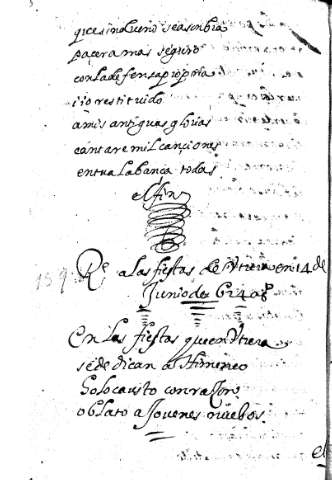 que es indueño se asonbra
paçera mas seguro
con la defensa propria
i io restituido
a mis antiguas glorias
cantare mil cançiones
en tu alabança todas
el fin
Re a las fiestas de Vtrera en 14 de
Junio de 624 as
En las fiestas que en Vtrera
se dedican a Himineo
holocausto con raçon
oblato a Jovenes nuebos.
el